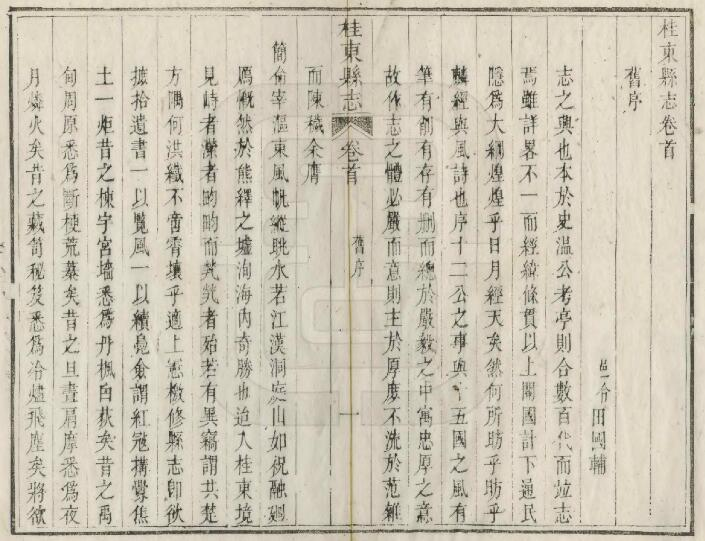 桂東縣志卷首
舊序
邑令田國輔
志之興也本於史溫公考亭則合數百代而竝志
焉雖詳畧不一而經緯條貫以上關國計下逼民
隱爲大綱煌煌乎日月經天矣然何所昉乎昉乎
麟經與風詩也序十二公之事與十五國之風有
筆有削有存有刪而總於嚴毅之中寓忠厚之意
故作志之體必嚴而意則主於厚庶不流於范雖
桂東縣志
卷首
舊序
一
而陳穢余膺
簡命宰漚東風帆縱眺水若江漢洞庭山如祝融廻
鴈慨然於熊繹之墟洵海內奇勝也迨入桂東境
見峙者濼者畇畇而芃芃者殆若有異竊謂共楚
方隅何洪纖不啻霄壤乎適上憲檄修縣志卽欲
摭拾遺書一以覽風一以續堯僉謂紅寇搆釁焦
土一炬昔之棟宇宮墻悉爲丹楓白荻矣昔之禹
甸周原悉爲斷梗荒蓁矣昔之旦晝肩摩悉爲夜
月燐火矣昔之藏笥秘笈悉爲冷燼飛塵矣將欲